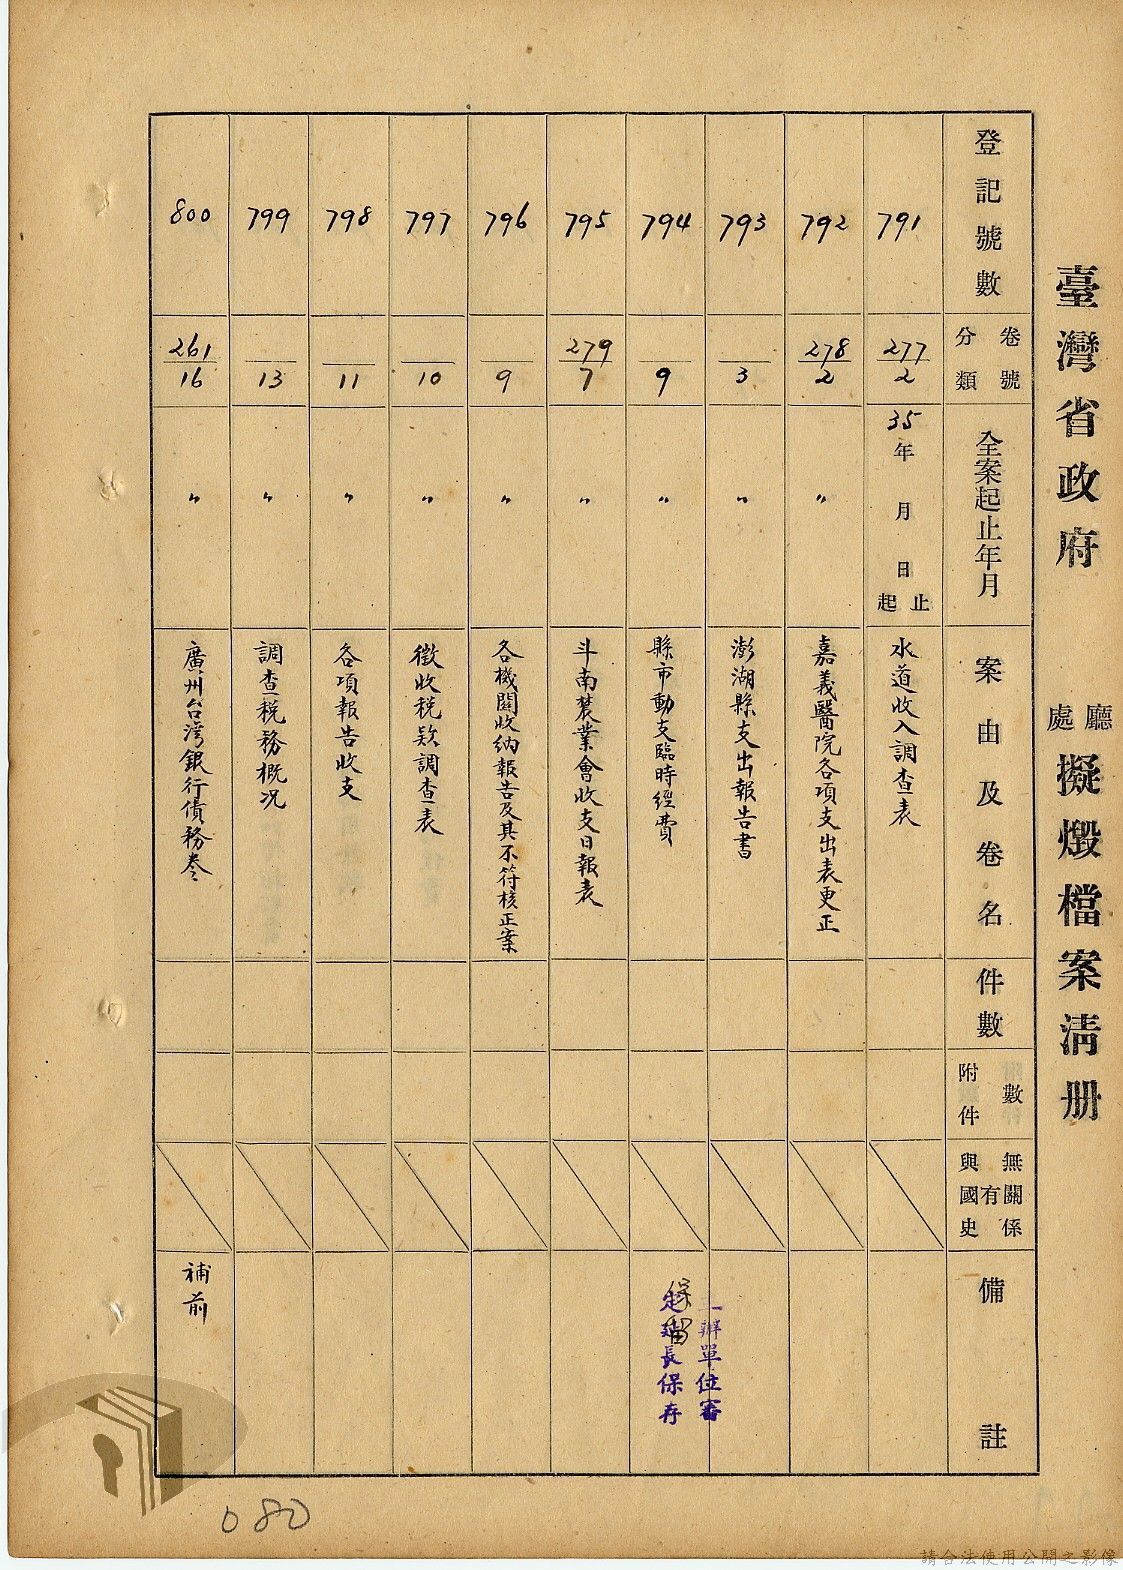 臺灣省政府 廳處 擬燬檔案清册
登記號數 卷號 分類 全案起止年月 案由及卷名 件數 附件數 與國史有無關係 備註
791 277/2 35年 月 日 起止 水道收入調查表
792 278/2 〃 嘉義醫院各項支出表更正
793 —/3 〃 澎湖縣支出報告書
794 —/9 〃 縣市動支臨時經費 保留
辦單位審
定延長保存
795 279/7 〃 斗南農業會收支日報表
796 —/9 〃 各機關收納報告及其不符核正案
797 —/10 〃 徵收稅款調查表
798 —/11 〃 各項報告收支
799 —/13 〃 調查稅務概況
800 261/16 〃 廣州台灣銀行債務卷 補前
080
請合法使用公開之影像